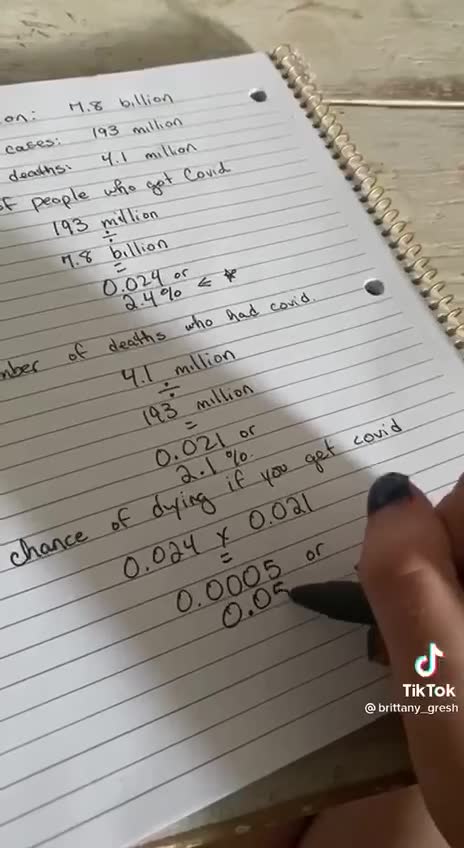 on: 7.8 billion
cases: 193 million
deaths: 4.1 million
of people who got Covid
193 million
÷
7.8 billion
=
0.024 or
2.4% ← *
mber of deaths who had covid.
4.1 million
÷
193 million
=
0.021 or
2.1%.
chance of dying if you get covid
0.024 x 0.021
=
0.0005 or
0.05
TikTok
@brittany_gresh